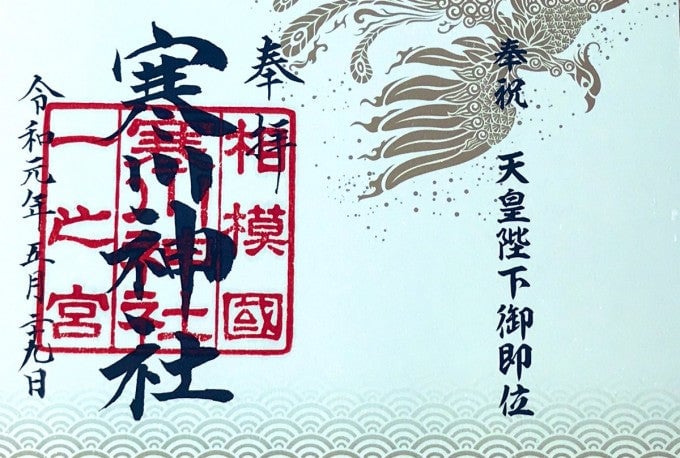 奉祝 天皇陛下御即位
奉拝
寒川神社
相模國
寒川神社
一之宮
令和元年 五月 二十九日